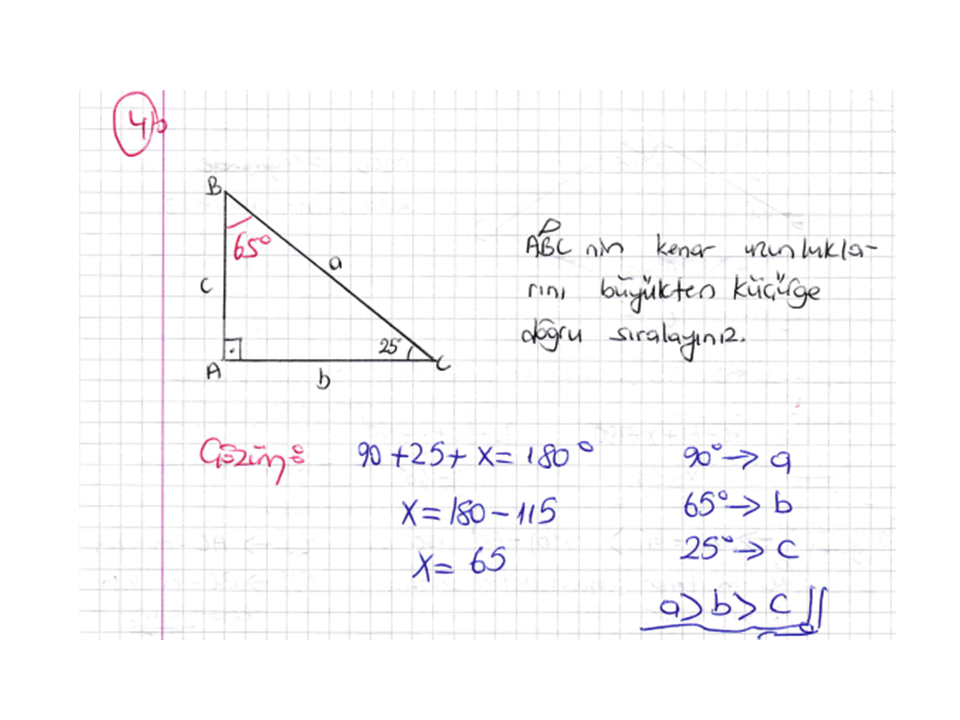 4)
B
65°
a
c
25°
A
b
C
ABC nin kenar uzunlukla-
rını büyükten küçüğe
doğru sıralayınız.
Çözüm:
90+25+x=180°
x=180-115
x=65
90°→a
65°→b
25°→c
a>b>c //